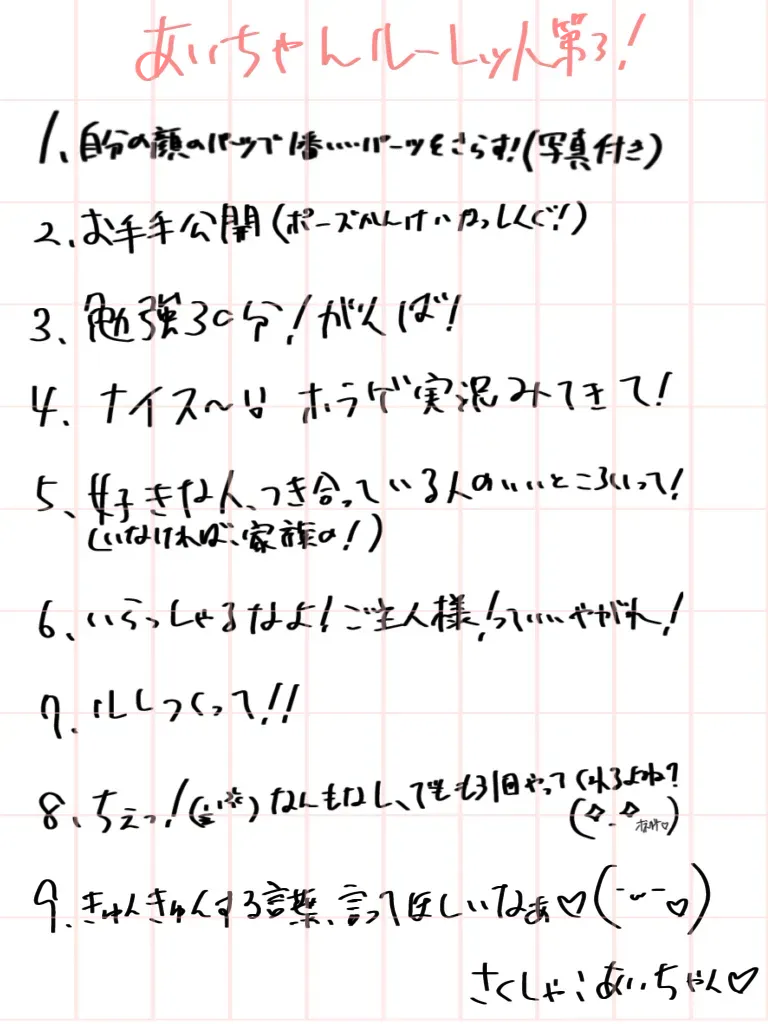 あいちゃんルーレット第3!
1、自分の顔のパーツで1番いいパーツをさらす!(写真付き)
2、お手手公開(ポーズかんけいなっしんぐ!)
3、勉強30分!がんば!
4、ナイス〜!! ホラゲ実況みてきて!
5、好きな人、つき合っている人のいいところいって!
(いなければ、家族の!)
6、いらっしゃるなよ!ご主人様!っていいやがれ!
7、ルしつくって!!
8、ちぇっ! なんもなし、でももう1回やってくれるよね?
9、きゅんきゅんする言葉、言ってほしいなぁ♡(˘⌣˘♡)
さくしゃ:あいちゃん♡